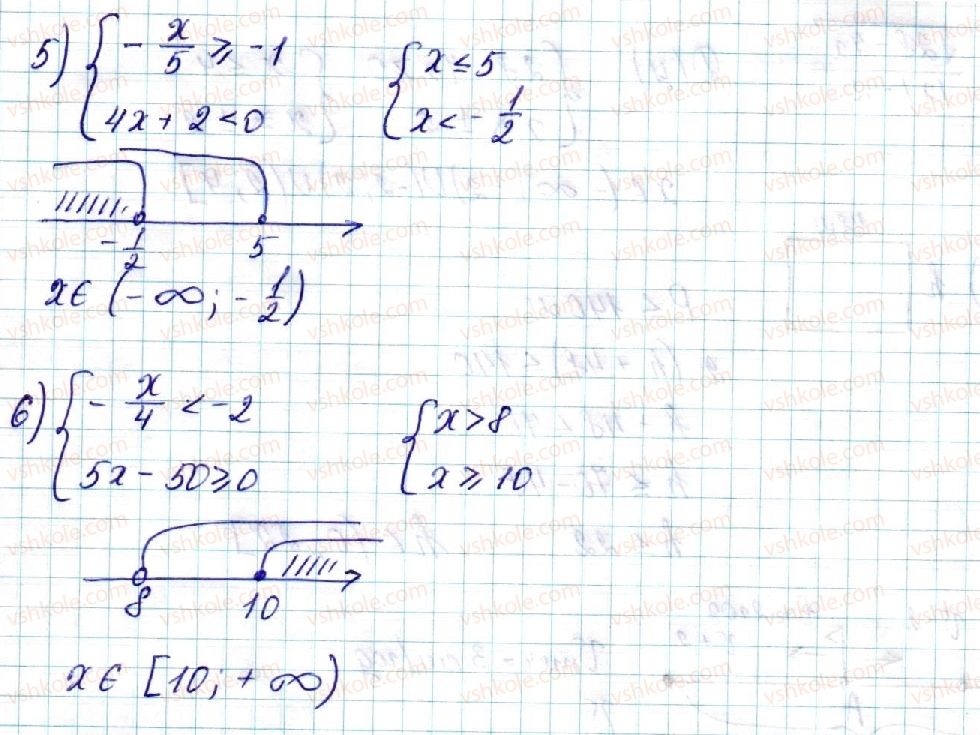 5) { - x/5 ≥ -1 { x ≤ 5
4x + 2 < 0 x < - 1/2
- 1/2 5
x ∈ (-∞; - 1/2)
6) { - x/4 < -2 { x > 8
5x - 50 ≥ 0 x ≥ 10
8 10
x ∈ [10; +∞)
vshkole.com